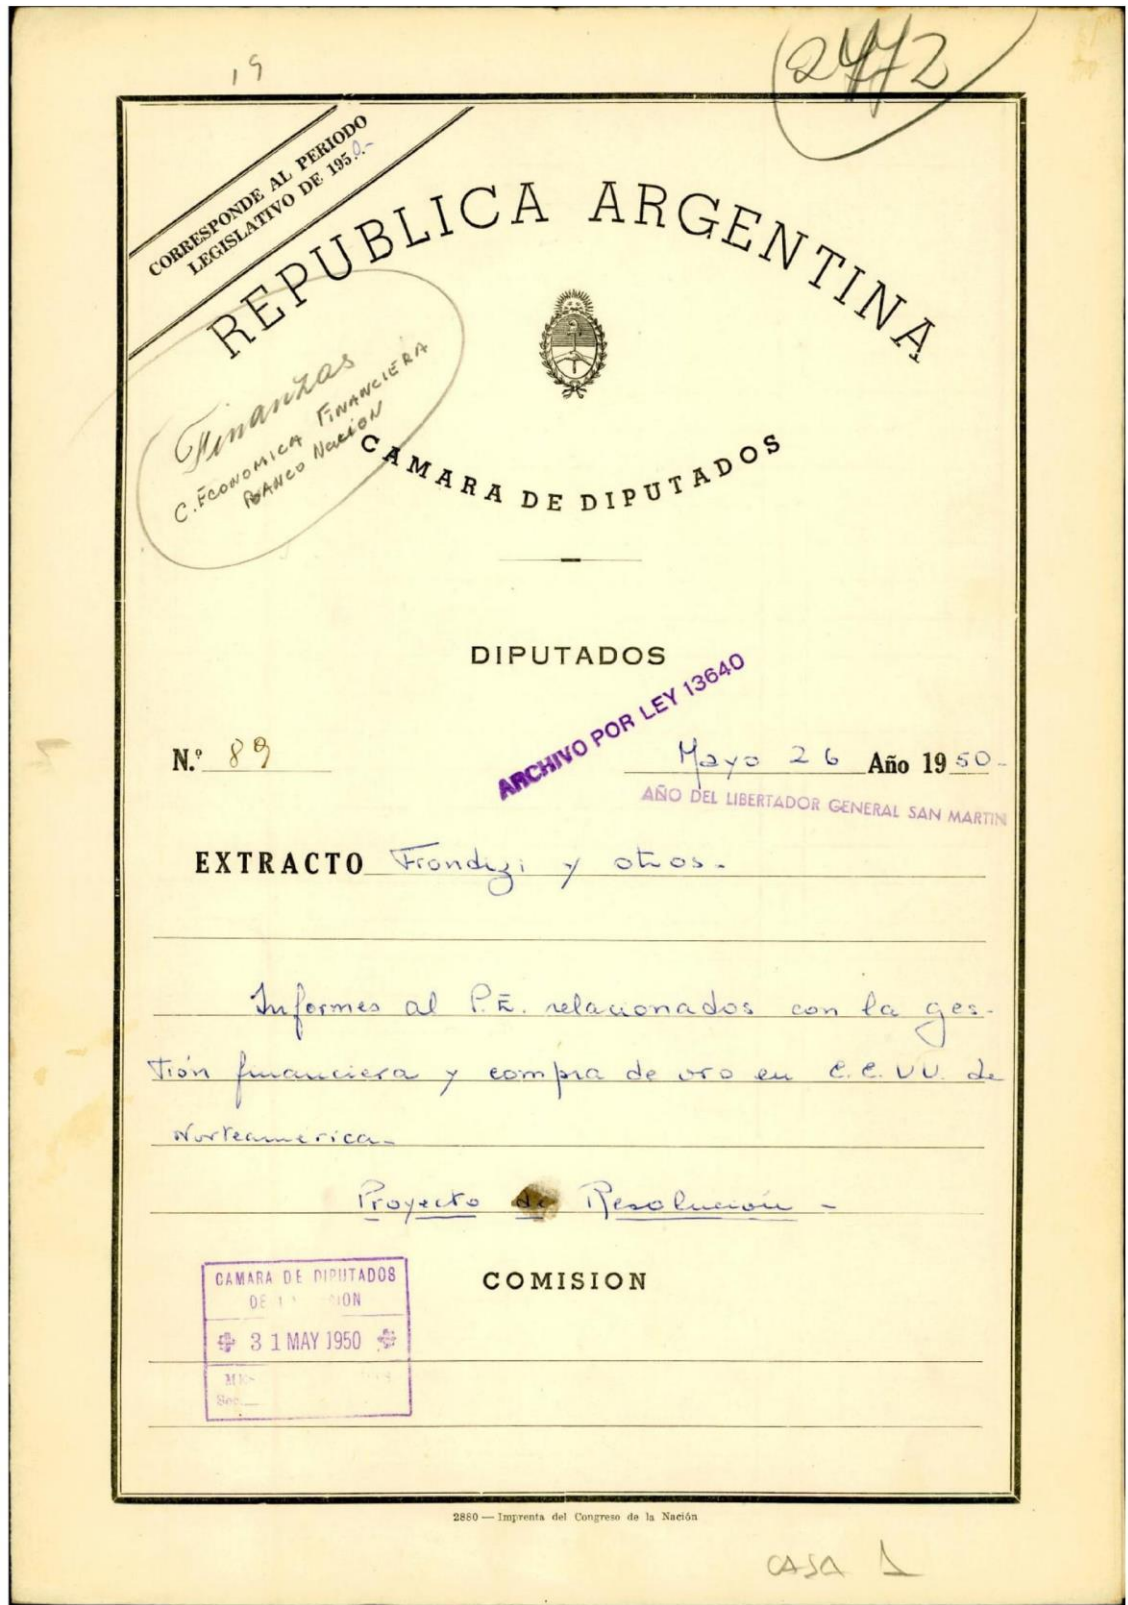 19
2472
CORRESPONDE AL PERIODO
LEGISLATIVO DE 1950.-
REPUBLICA ARGENTINA
Finanzas
C. ECONOMICA FINANCIERA
BANCO Nación
CAMARA DE DIPUTADOS
DIPUTADOS
ARCHIVO POR LEY 13640
N.º 89
Mayo 26 Año 1950-
AÑO DEL LIBERTADOR GENERAL SAN MARTIN
EXTRACTO Frondizi y otros.
Informes al P.E. relacionados con la ges-
tión financiera y compra de oro en E.E. U.U. de
Norteamerica-
Proyecto de Resolución -
CAMARA DE DIPUTADOS
DE
31 MAY 1950
COMISION
2880 — Imprenta del Congreso de la Nación
CASA 1